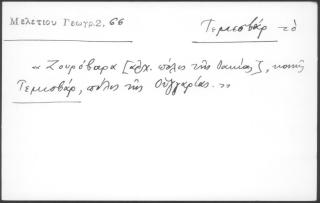 Μελετίου Γεωγρ.2, 66
Τεμεσβάρ τὸ
« Ζουρόβαρα [ἀρχ. πόλις τῆς Δακίας], κοινῶς
Τεμεσβάρ, πόλις τῆς Οὐγγαρίας. »